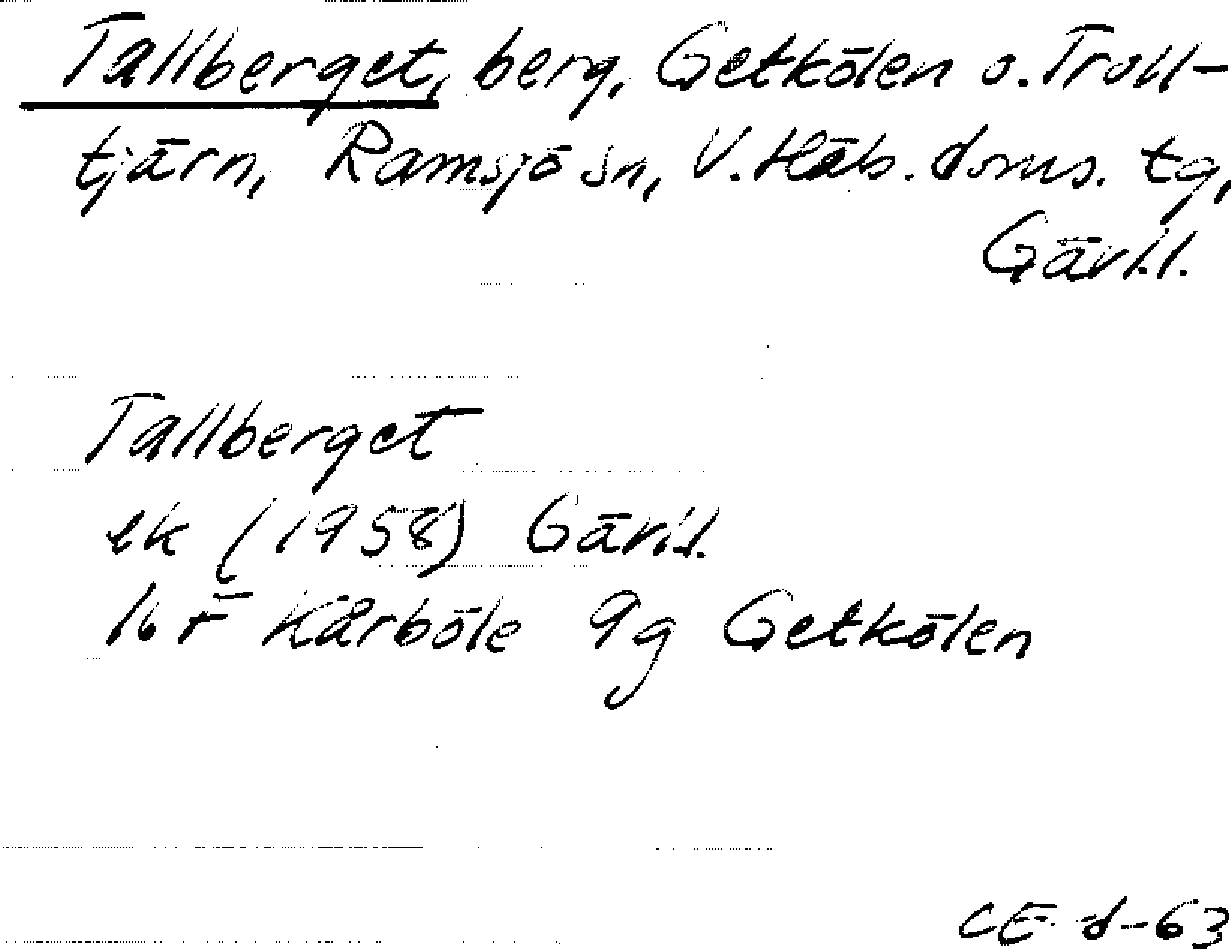 Tallberget, berg, Getkölen o. Troll-
tjärn, Ramsjö sn, V. Häls. doms. tg,
Gävl.l.
Tallberget
ek (1958) Gävl.l.
16 F Kårböle 9g Getkölen
CE d-63